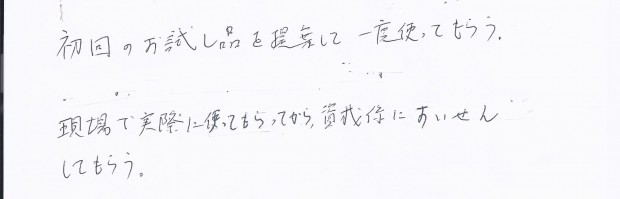 初回のお試し品を提案して一度使ってもらう。
現場で実際に使ってもらってから、資材係にあいせん
してもらう。